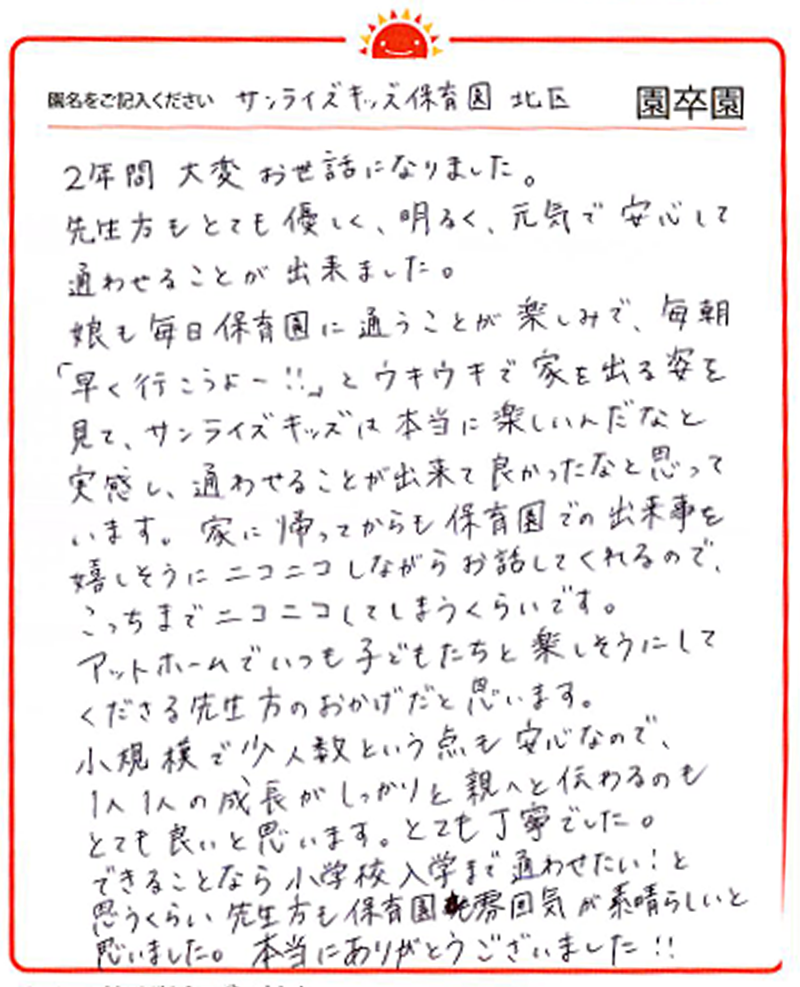 園名をご記入ください サンライズキッズ保育園 北区 園卒園
2年間 大変 お世話になりました。
先生方もとても優しく、明るく、元気で 安心して
通わせることが 出来ました。
娘も 毎日 保育園に 通うことが 楽しみで、毎朝
「早く行こうよー!!」と ウキウキで 家を出る姿を
見て、サンライズキッズは 本当に 楽しいんだなと
実感し、通わせることが出来て 良かったなと思って
います。家に帰ってからも 保育園での 出来事を
嬉しそうに ニコニコしながら お話してくれるので、
こっちまで ニコニコしてしまうくらいです。
アットホームで いつも 子どもたちと 楽しそうにして
くださる 先生方の おかげだと 思います。
小規模で 少人数という点も 安心なので、
1人1人の 成長が しっかりと 親へと 伝わるのも
とても 良いと 思います。とても 丁寧でした。
できることなら 小学校入学まで 通わせたい!と
思うくらい 先生方も 保育園も雰囲気が 素晴らしいと
思いました。本当に ありがとうございました!!